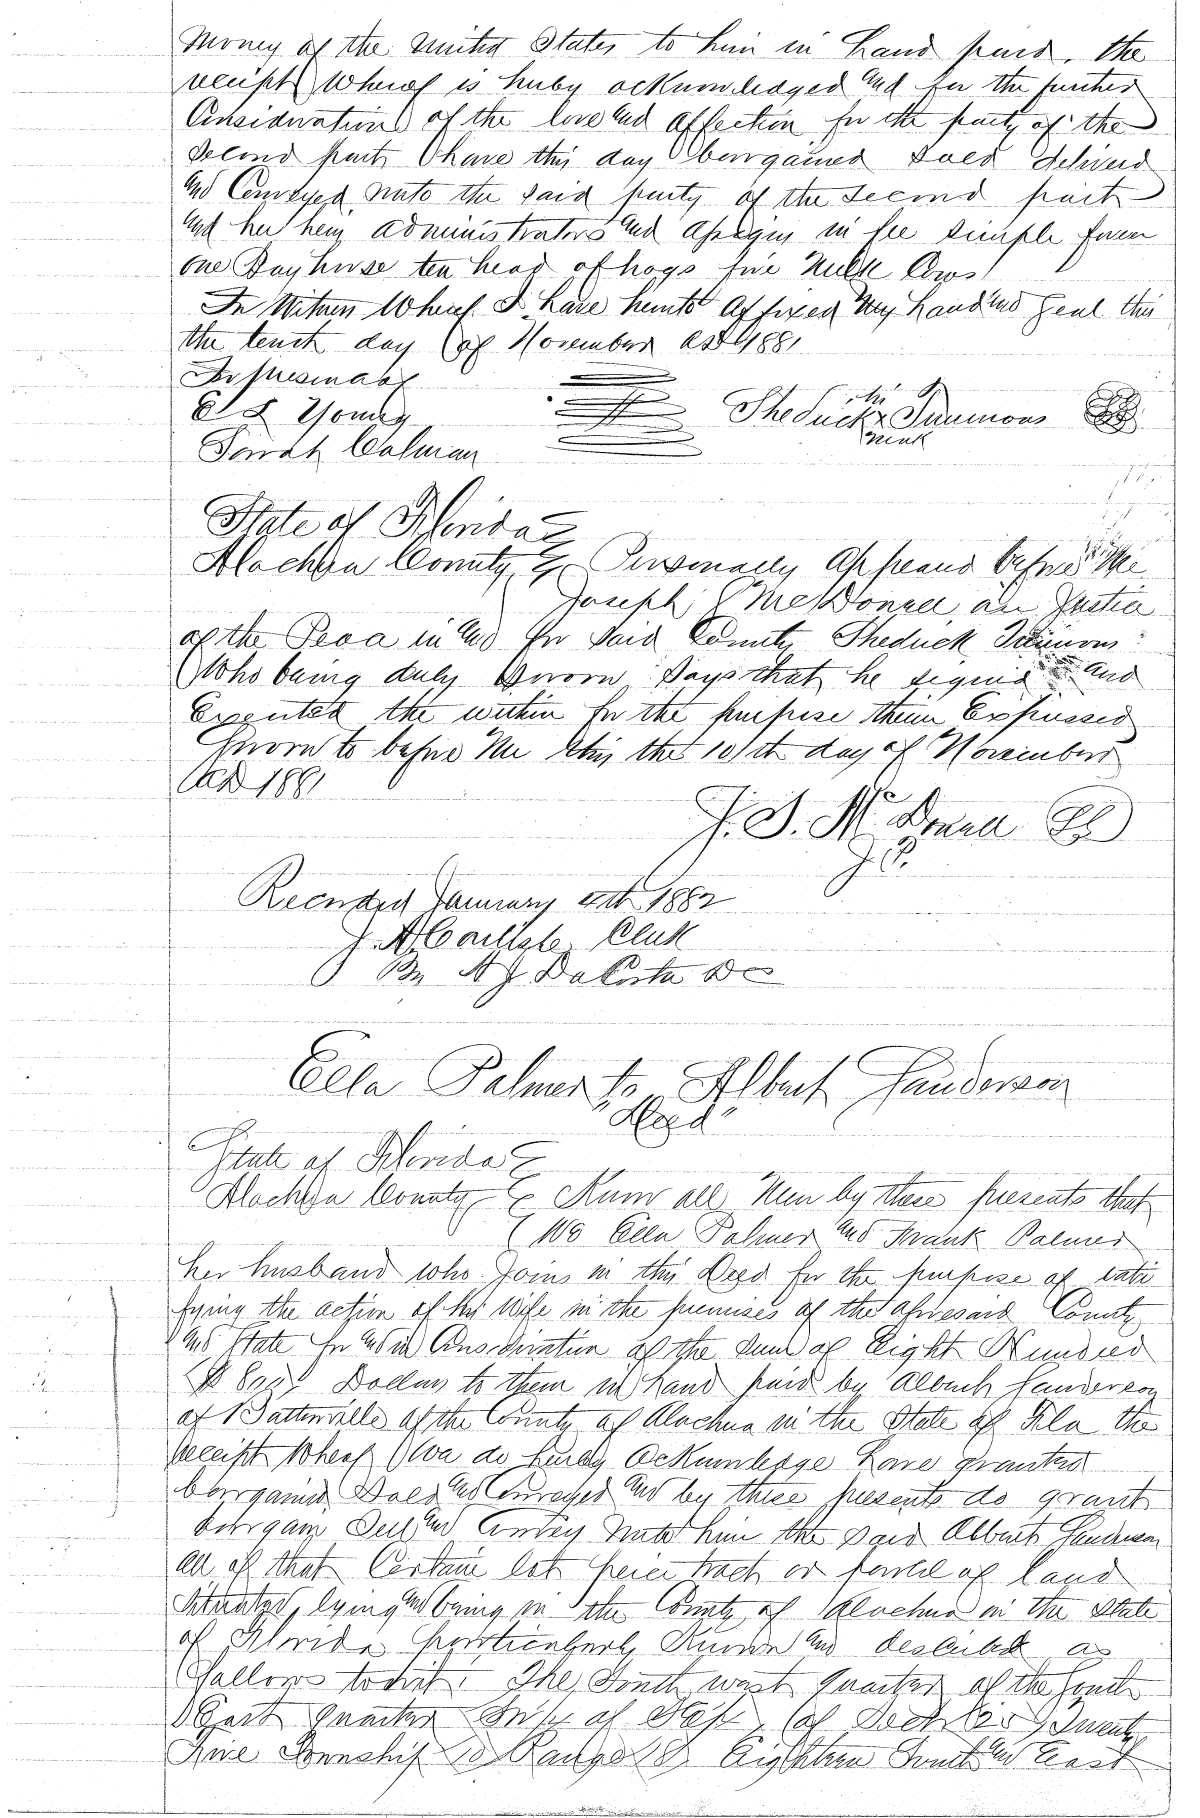 Money of the United States to him in hand paid, the
receipt whereof is hereby acknowledged and for the further
Consideration of the love and affection for the party of the
Second part I have this day bargained sold delivered
and Conveyed unto the said party of the second part
and her heirs administrators and assigns in fee simple forever
one Bay horse ten head of hogs five Milk Cows
In Witness Whereof I have hereunto affixed my hand and Seal this
the tenth day of November AD 1881
In presence of
E L Young
Sarah Colman
his
Sheduck x Simmons
mark
State of Florida
Alachua County Personally Appeard before Me
Joseph McDonell a Justice
of the Peace in and for said County Sheduck Simmons
Who being duly sworn Says that he signed and
Executed the within for the purpose therein Expressed
Sworn to before Me this the 10th day of November
AD 1881
J. S. McDonell
J. P.
Recorded January 4th 1882
J. A. Carlisle Clerk
By A J DaCosta DC
Ella Palmer to Albert Sanderson
"Deed"
State of Florida
Alachua County Know all Men by these presents that
We Ella Palmer and Frank Palmer
her husband who joins in this Deed for the purpose of rati
fying the action of his Wife in the premises of the aforesaid County
and State for and in Consideration of the sum of Eight Hundred
Dollars to them in hand paid by Albert Sanderson
of of the County of Alachua in the State of Fla the
receipt Whereof We do hereby acknowledge have granted
bargained Sold and Conveyed and by these presents do grant
bargain Sell and Convey unto him the said Albert Sanderson
all of that Certain lot piece tract or parcel of land
Situated, lying and being in the County of Alachua in the State
of Florida particularly Known and described as
follows towit: The South west quarter of the South
East quarter of of Section Twenty
Five Township 10 Range 18 Eighteen South and East